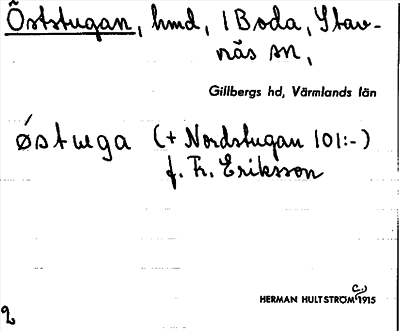 Öststugan, hmd, 1 Boda, Stav-
näs sn,
Gillbergs hd, Värmlands län
østuga (+ Nordstugan 101:-)
f. Fr. Eriksson
HERMAN HULTSTRÖM c.) 1915
2